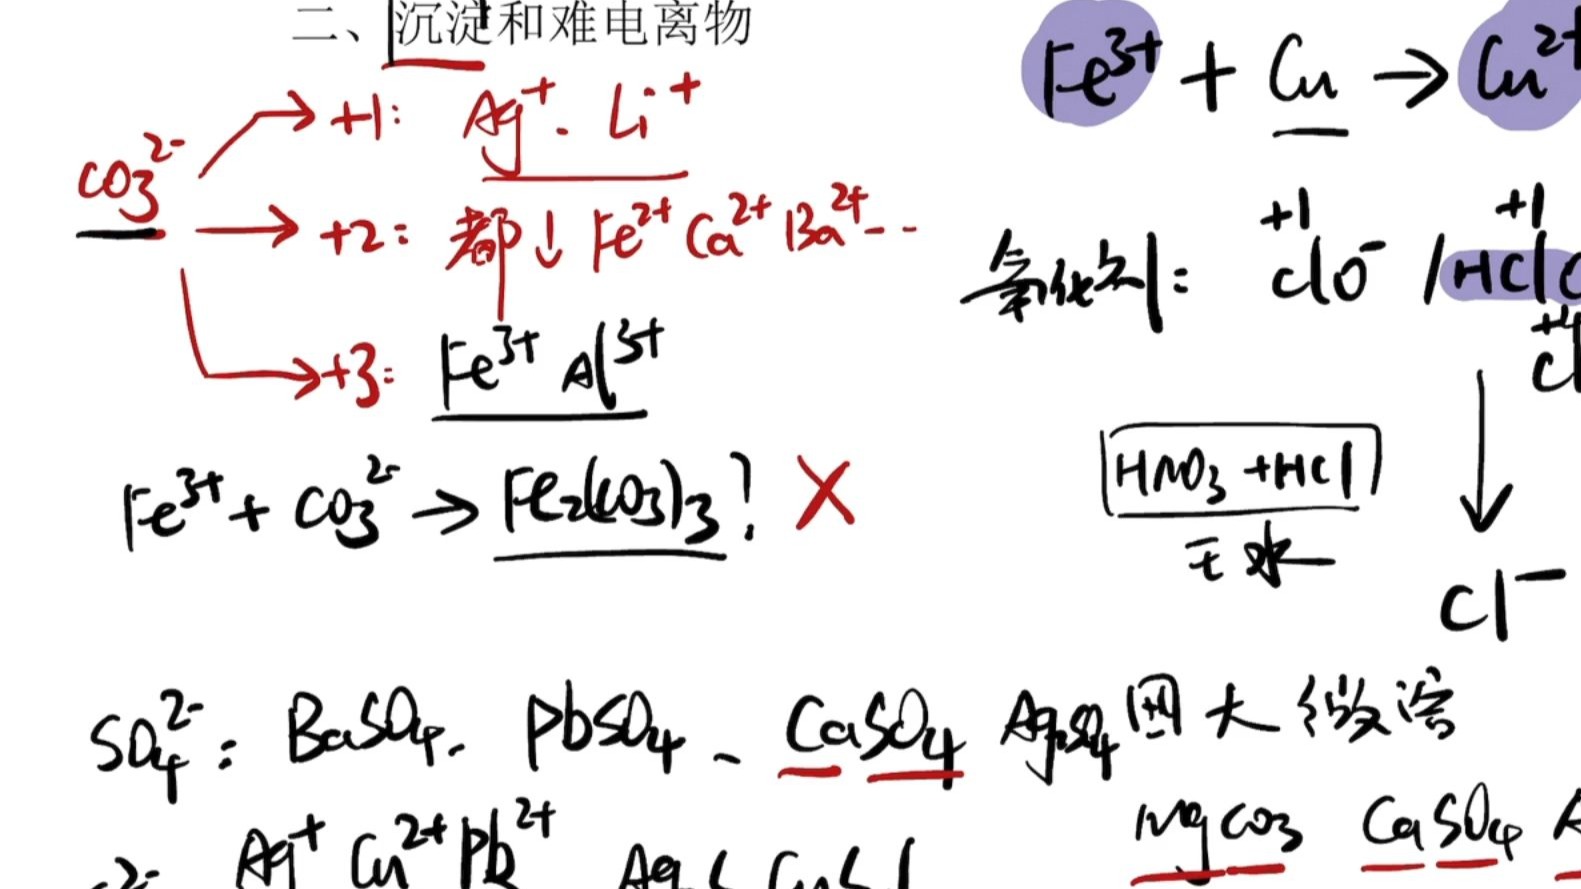 二、沉淀和难电离物
CO3^2- → +1: Ag+ . Li+
→ +2: 都↓ Fe^2+ Ca^2+ Ba^2+ --
→ +3: Fe^3+ Al^3+
Fe^3+ + CO3^2- → Fe2(CO3)3? X
Fe^3+ + Cu → Cu^2+
氧化剂:
+1 +1
ClO^- / HClO
+4
Cl
HNO3 + HCl
王水
↓
Cl^-
SO4^2-: BaSO4. PbSO4、CaSO4 Ag2SO4 四大微溶
MgCO3 CaSO4 A
2- Ag+ Cu^2+ Pb^2+